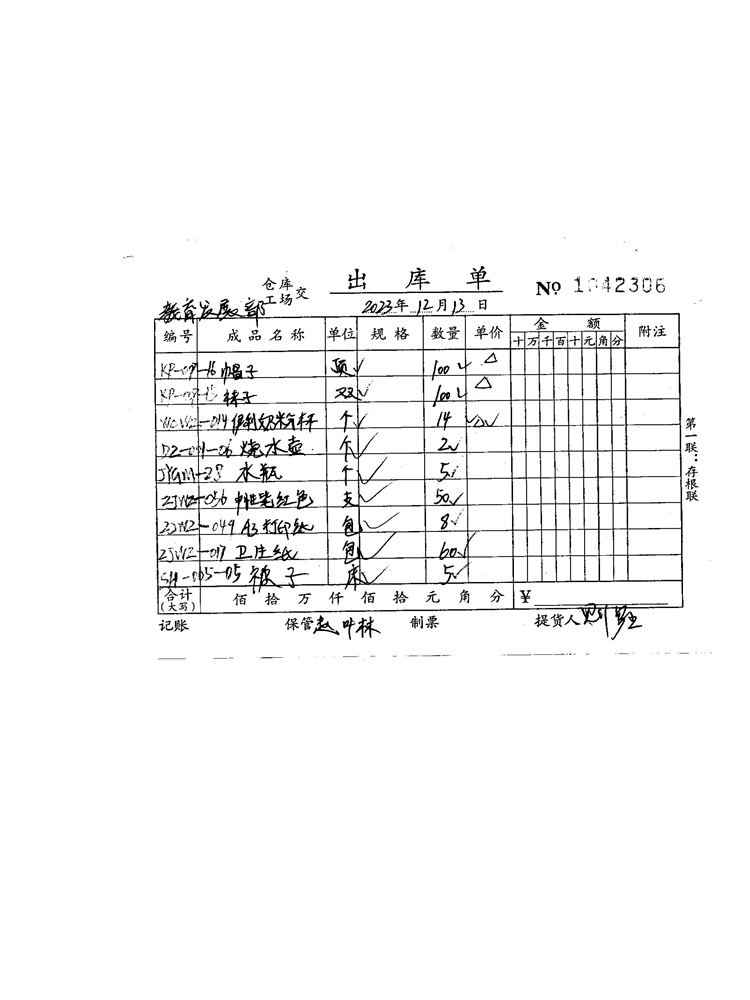 出库单
仓库
工场 交
No 1042306
教育发展部
2023年12月13日
编号 成品名称 单位 规格 数量 单价 金额 附注
十万千百十元角分
帽子 顶 ✓ 100 ✓ △
袜子 双 ✓ 100 ✓ △
伊利奶粉杯 个 ✓ 14 ✓
DZ-01-06 烧水壶 个 ✓ 2 ✓
水瓶 个 ✓ 5 ✓
ZJWZ-056 中性笔红色 支 ✓ 50 ✓
ZJWZ-049 A3打印纸 包 ✓ 8 ✓
ZJWZ-017 卫生纸 包 ✓ 60 ✓
SH-005-05 被子 床 ✓ 5 ✓
合计
(大写) 佰拾万仟佰拾元角分 ¥
记账 保管 赵叶林 制票 提货人
第一联：存根联